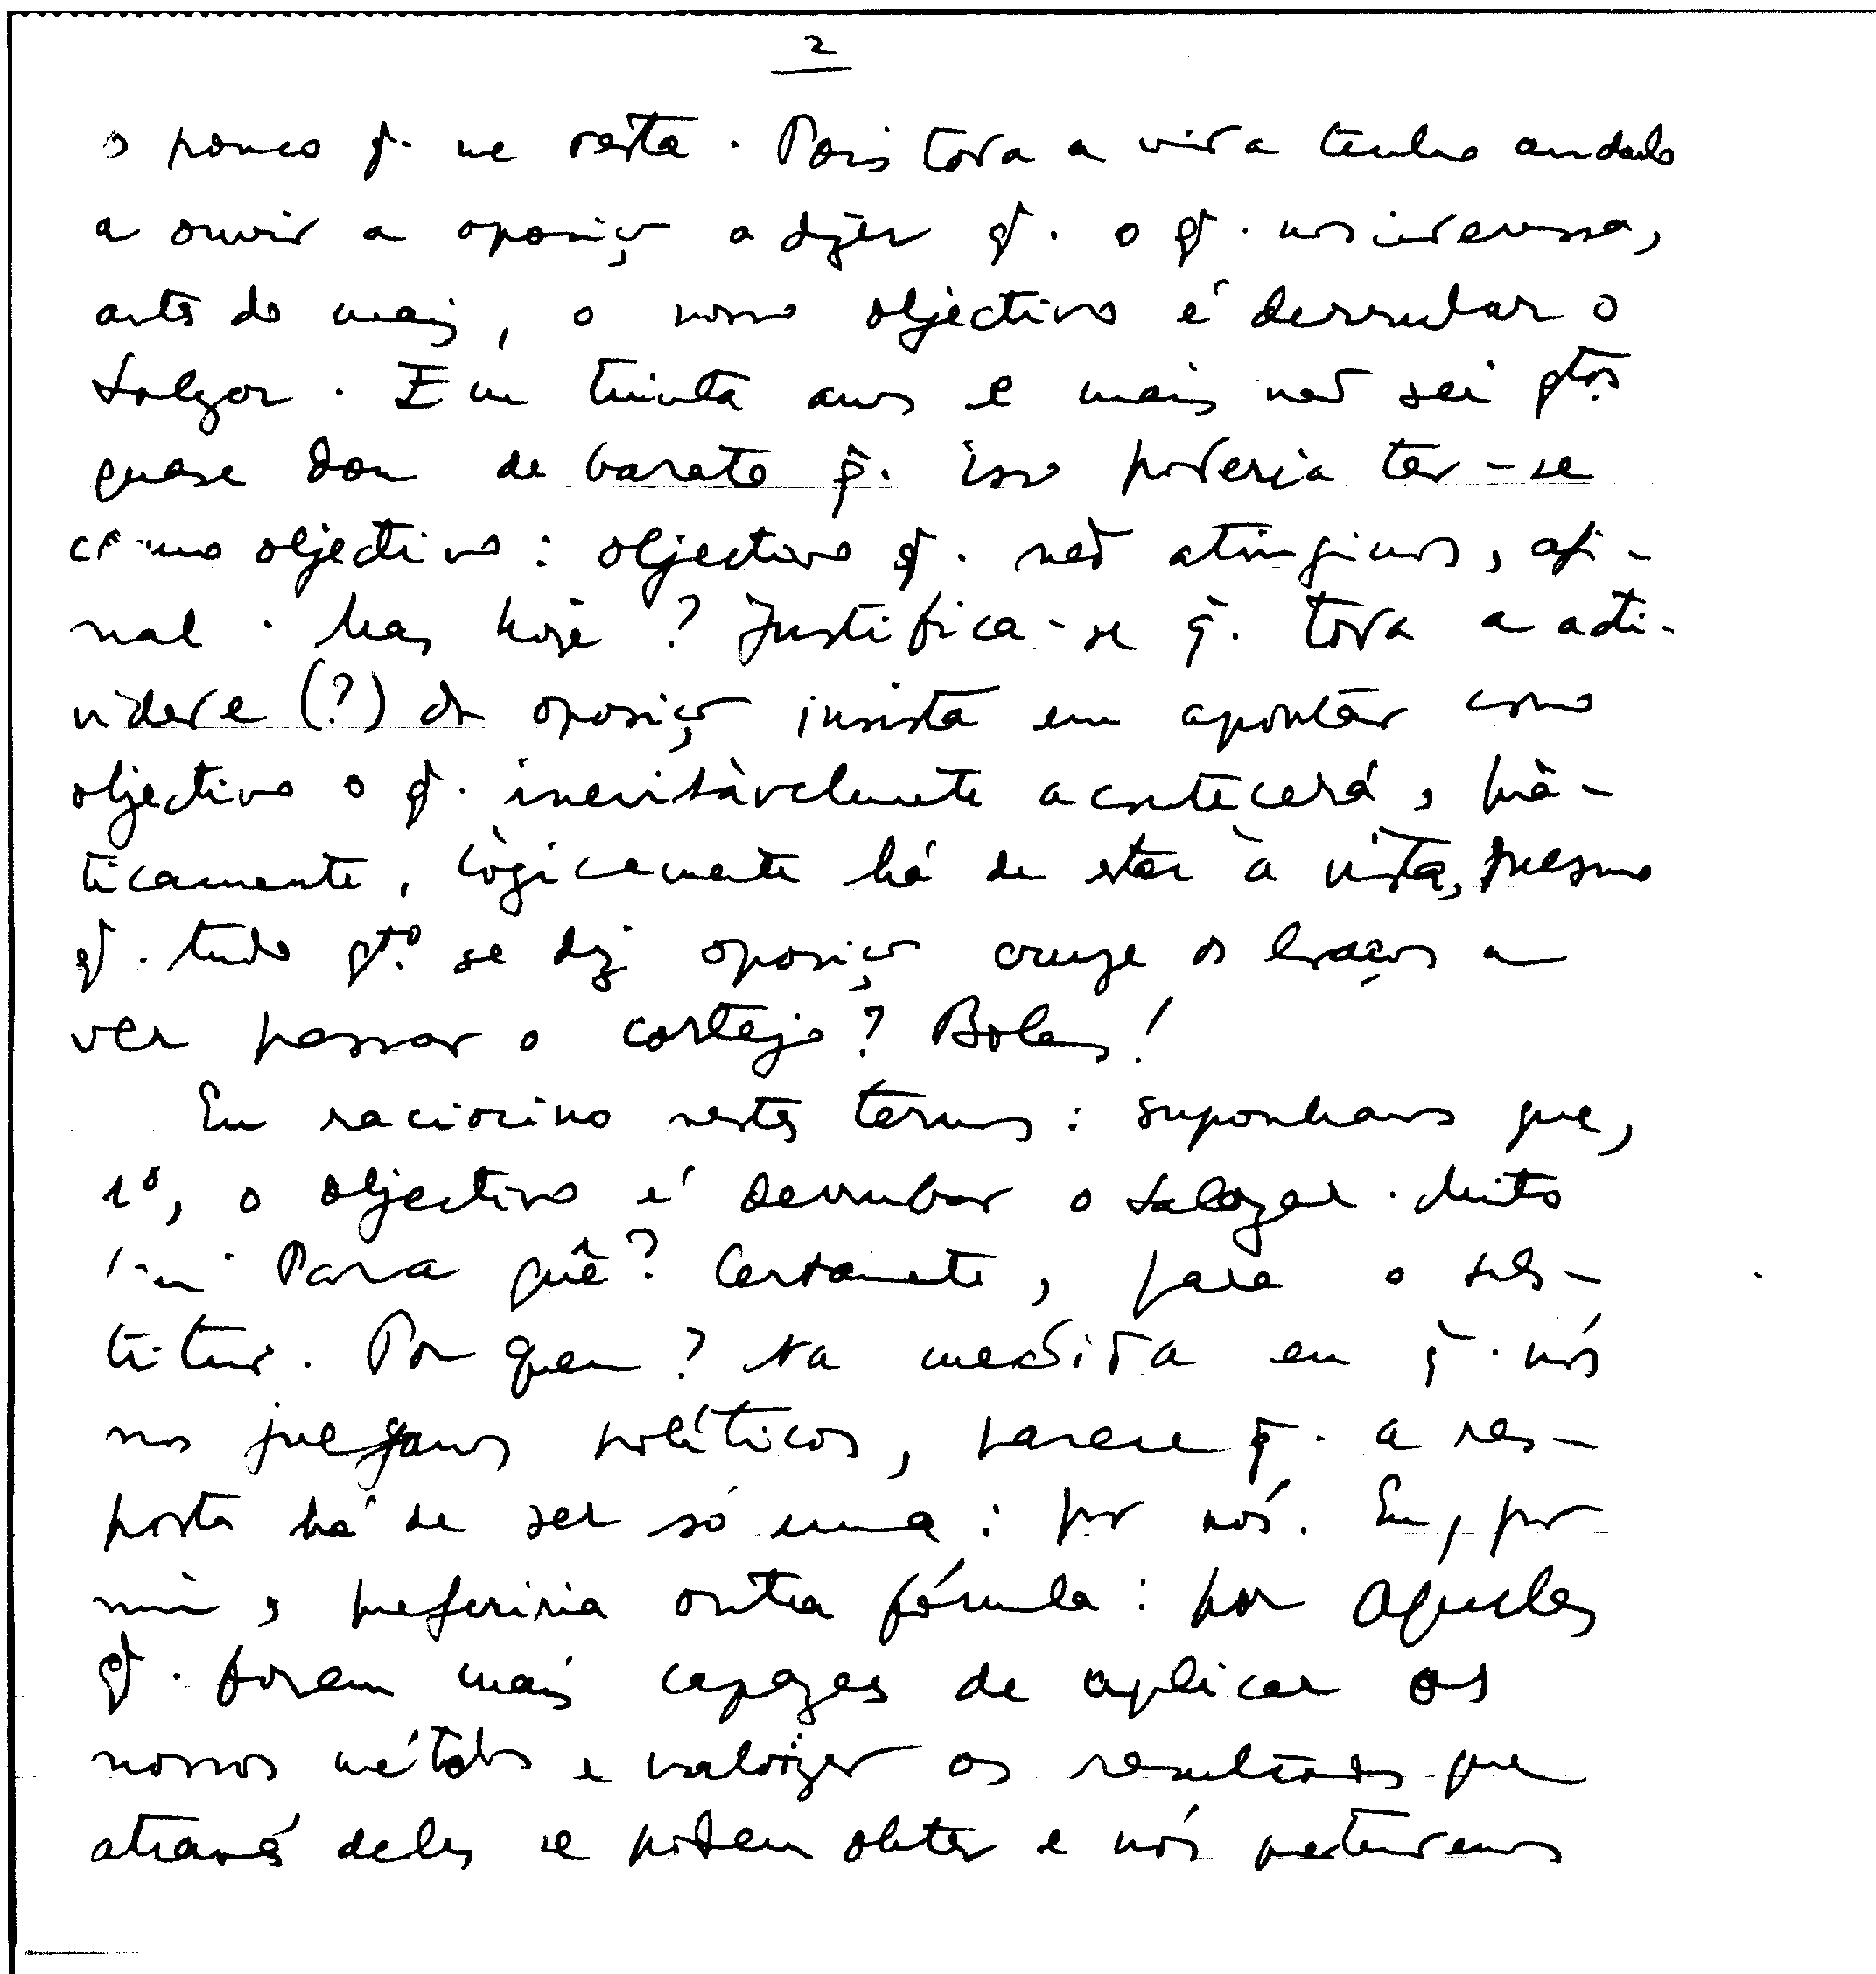 2
o pouco q. me resta. Pois toda a vida tenho andado
a ouvir a oposição a dizer q. o q. nos interessa,
antes de mais, o nosso objectivo é derrubar o
Salazar. Em trinta anos e mais não sei qtos.
quase dou de barato q. isso poderia ter-se
como objectivo: objectivo q. não atingimos, afi-
nal. Mas hoje? Justifica-se q. toda a acti-
vidade (?) da oposição insista em apontar como
objectivo o q. inevitàvelmente acontecerá, prà-
ticamente, lògicamente há de estar à vista, mesmo
q. tudo qto. se diz oposição cruze os braços a
ver passar o cortejo? Bolas!
Eu raciocino nestes termos: suponhamos que,
1º, o objectivo é derrubar o Salazar. Muito
Para quê? Certamente, para o subs-
tituir. Por quem? Na medida em q. nós
nos julgamos políticos, parece q. a res-
posta há de ser só uma: por nós. Eu, por
mim, preferiria outra fórmula: por aqueles
q. forem mais capazes de aplicar os
nossos métodos e valorizar os resultados que
através deles se podem obter e nós pretendemos